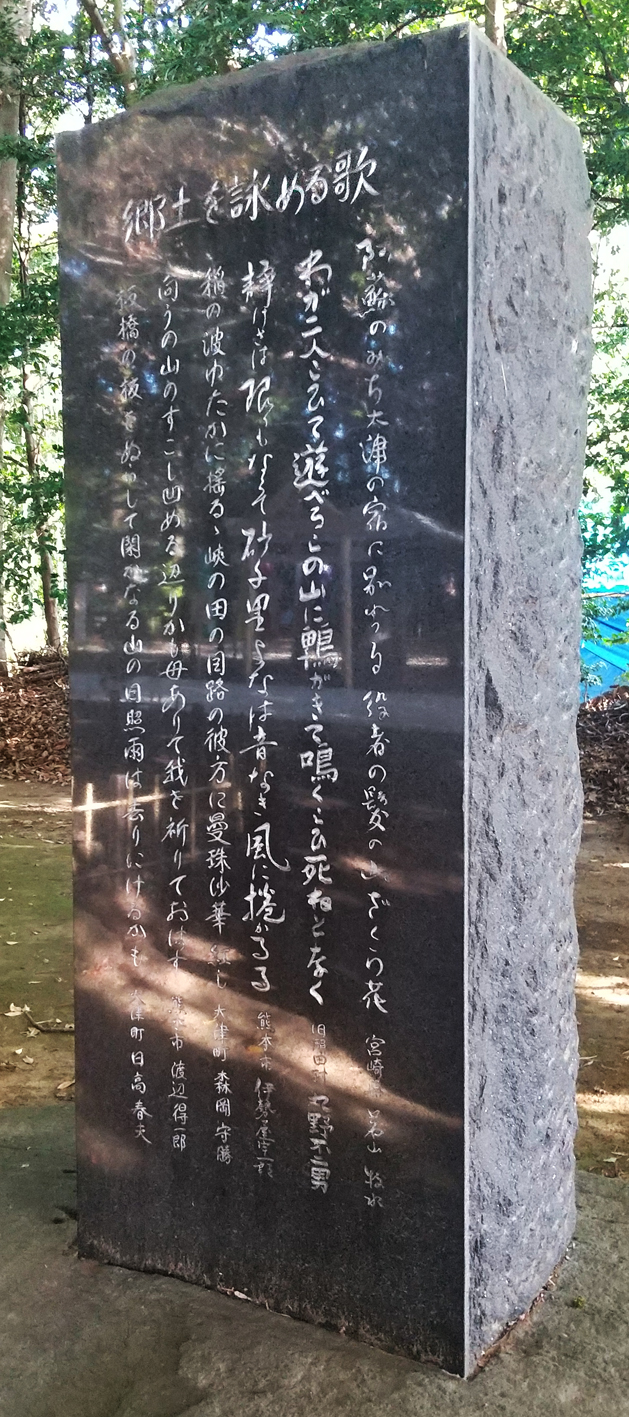 郷土を詠める歌
阿蘇のみち大津の宿に別れつる役者の髪の山ざくら花 宮崎県 若山 牧水
わが二人こひて遊べるこの山に鴨がきて鳴くこひ死ねとなく 旧福田村
静けさは限りもなくて砂子里 音なき風に捲かるる 熊本市
稲の波ゆたかに揺るゝ峡の田の囘路の彼方に曼珠沙華 し 大津町 森岡 守勝
向うの山のすこし凹める辺りかも母ありて我を祈りておはす 熊本市 渡辺 得一郎
板橋の板をぬらして閑かなる山の日照雨は去りにけるかも 町 日高 春夫